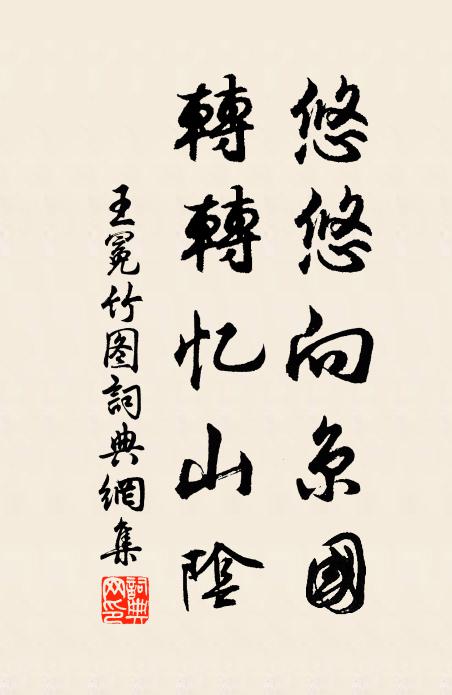 悠悠向京國
轉轉忆山陰
王冕竹图詞典網集
詞典網印